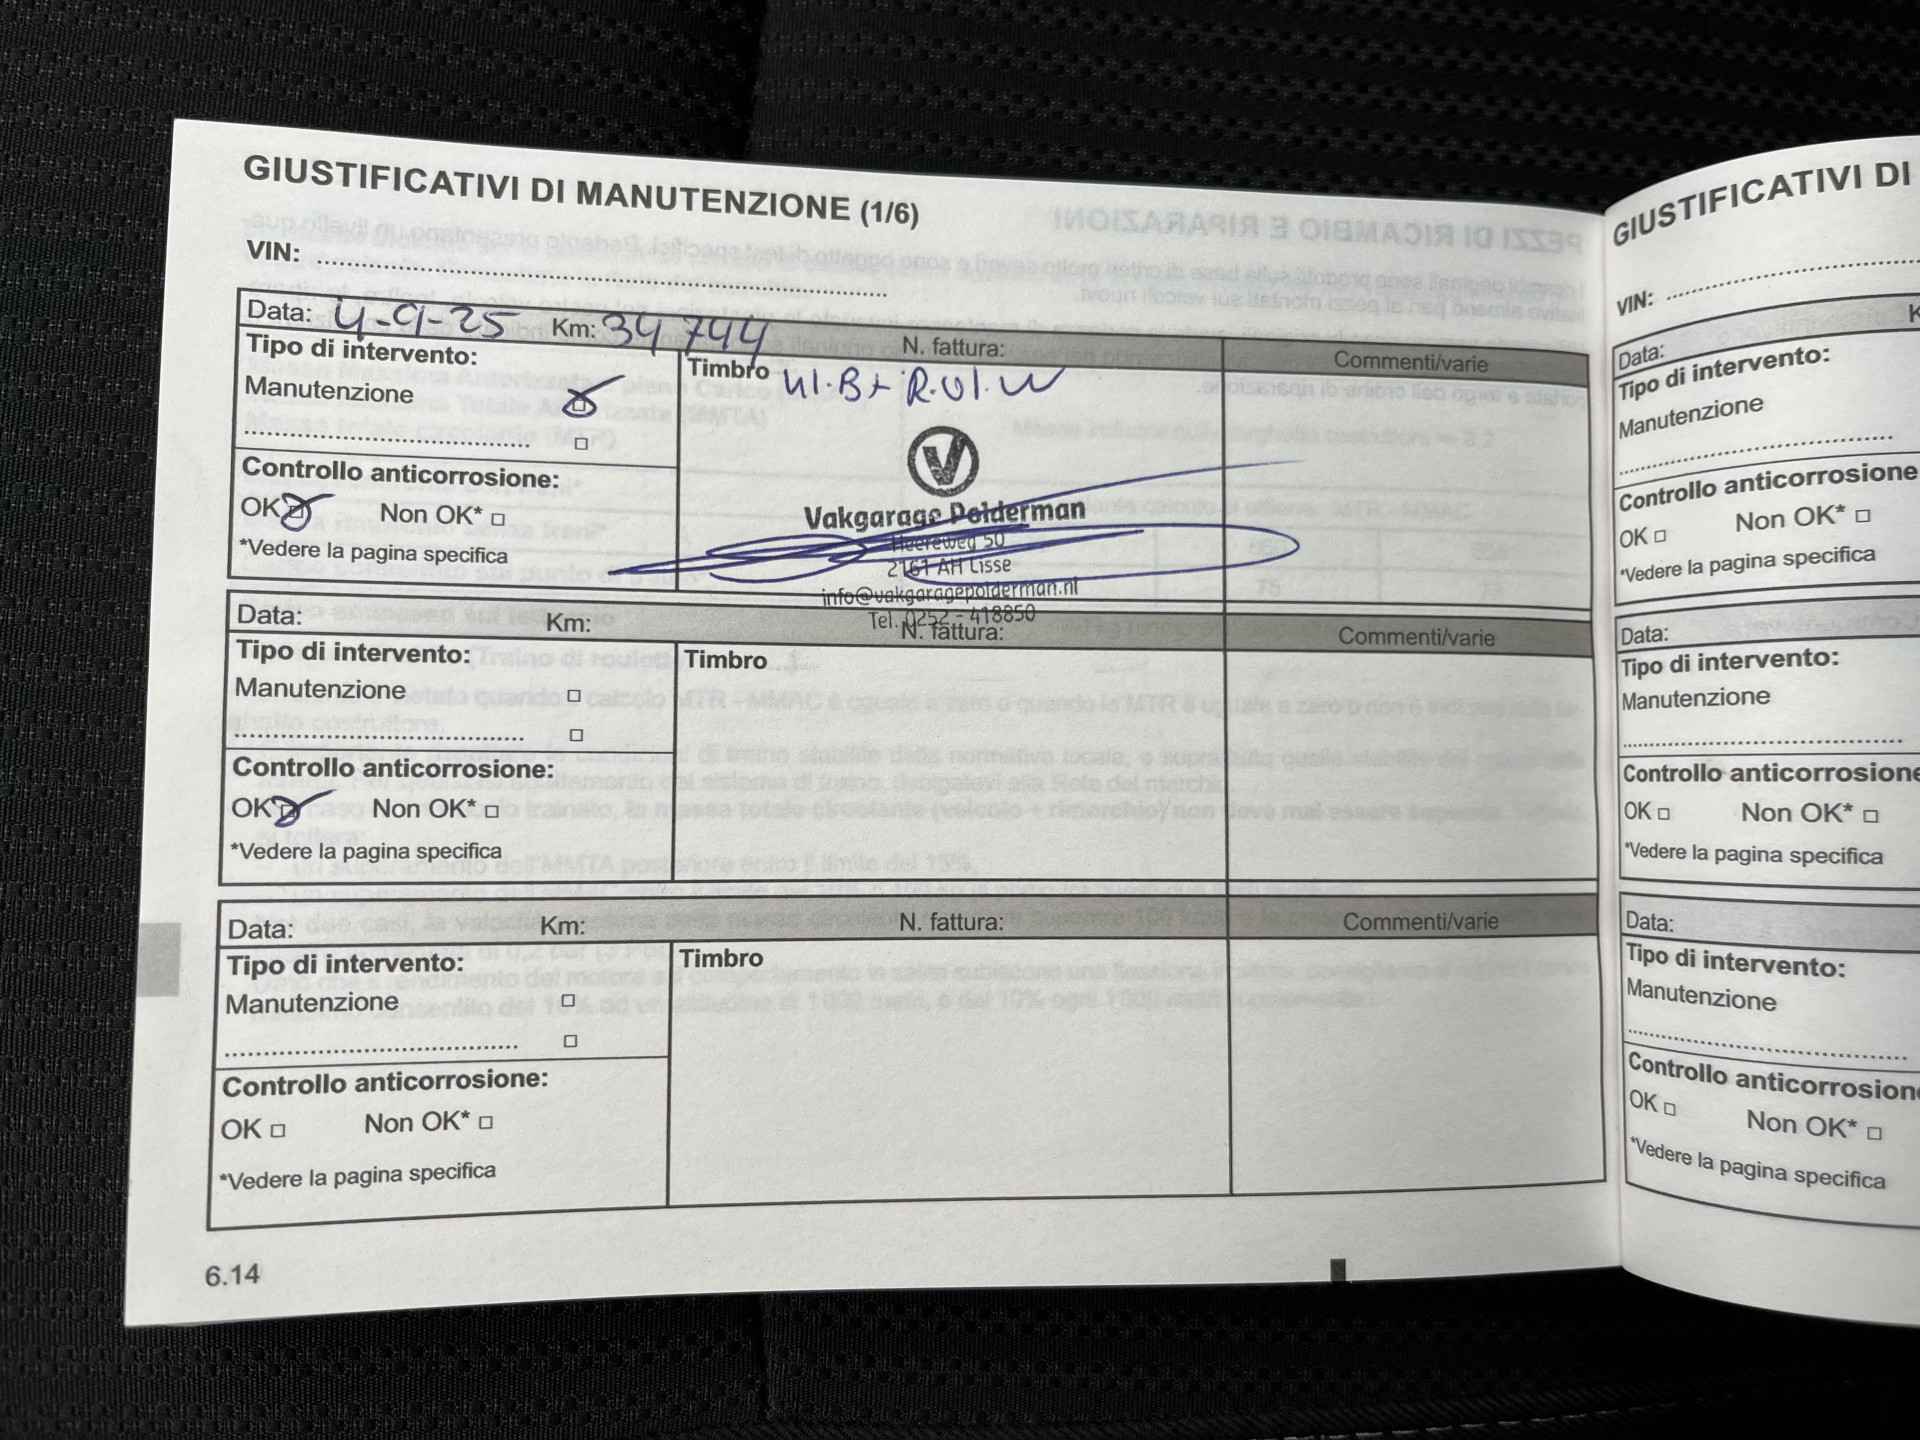 GIUSTIFICATIVI DI MANUTENZIONE (1/6)
VIN:
Data: 4-9-25 Km: 34744 N. fattura: Commenti/varie
Tipo di intervento:
Timbro
Manutenzione
V
Controllo anticorrosione:
OK Non OK*
*Vedere la pagina specifica
Vakgarage Polderman
Heereweg 50
2161 AH Lisse
info@vakgaragepolderman.nl
Tel. 0252 - 418850
Data: Km: N. fattura: Commenti/varie
Tipo di intervento:
Timbro
Manutenzione
Controllo anticorrosione:
OK Non OK*
*Vedere la pagina specifica
Data: Km: N. fattura: Commenti/varie
Tipo di intervento:
Timbro
Manutenzione
Controllo anticorrosione:
OK Non OK*
*Vedere la pagina specifica
6.14
GIUSTIFICATIVI DI
VIN:
Data:
Tipo di intervento:
Manutenzione
Controllo anticorrosione
OK Non OK*
*Vedere la pagina specifica
Data:
Tipo di intervento:
Manutenzione
Controllo anticorrosione
OK Non OK*
*Vedere la pagina specifica
Data:
Tipo di intervento:
Manutenzione
Controllo anticorrosion
OK Non OK*
*Vedere la pagina specifica